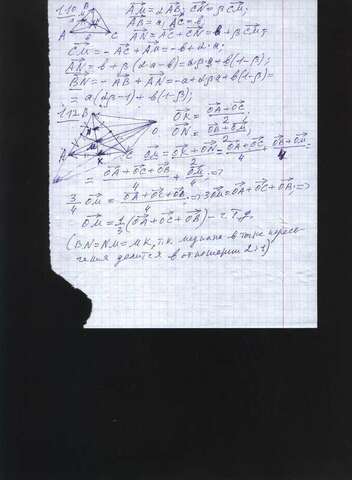 1.10 B
A C
b
AM = αAB; CN = βCM;
AB = a; AC = b
AN = AC + CN = b + βCM;
CM = -AC + AM = -b + α·a;
AN = b + β(αa-b) = αβa + b(1-β);
BN = -AB + AN = -a + αβa + b(1-β) =
= a(αβ-1) + b(1-β);
1.12 B
O
A K C
N
M
OK = OA+OC / 2;
ON = OB+OM / 2;
OM = OK+ON / 2 = OA+OC / 4 + OB+OM / 4 =
= OA+OC+OB / 4 + OM / 4; =>
3/4 OM = OA+OC+OB / 4 => 3OM = OA+OC+OB; =>
OM = 1/3 (OA+OC+OB) - ч.т.д.
(BN=NM=MK, т.к. медиана в точке пересе-
чения делится в отношении 2:1)